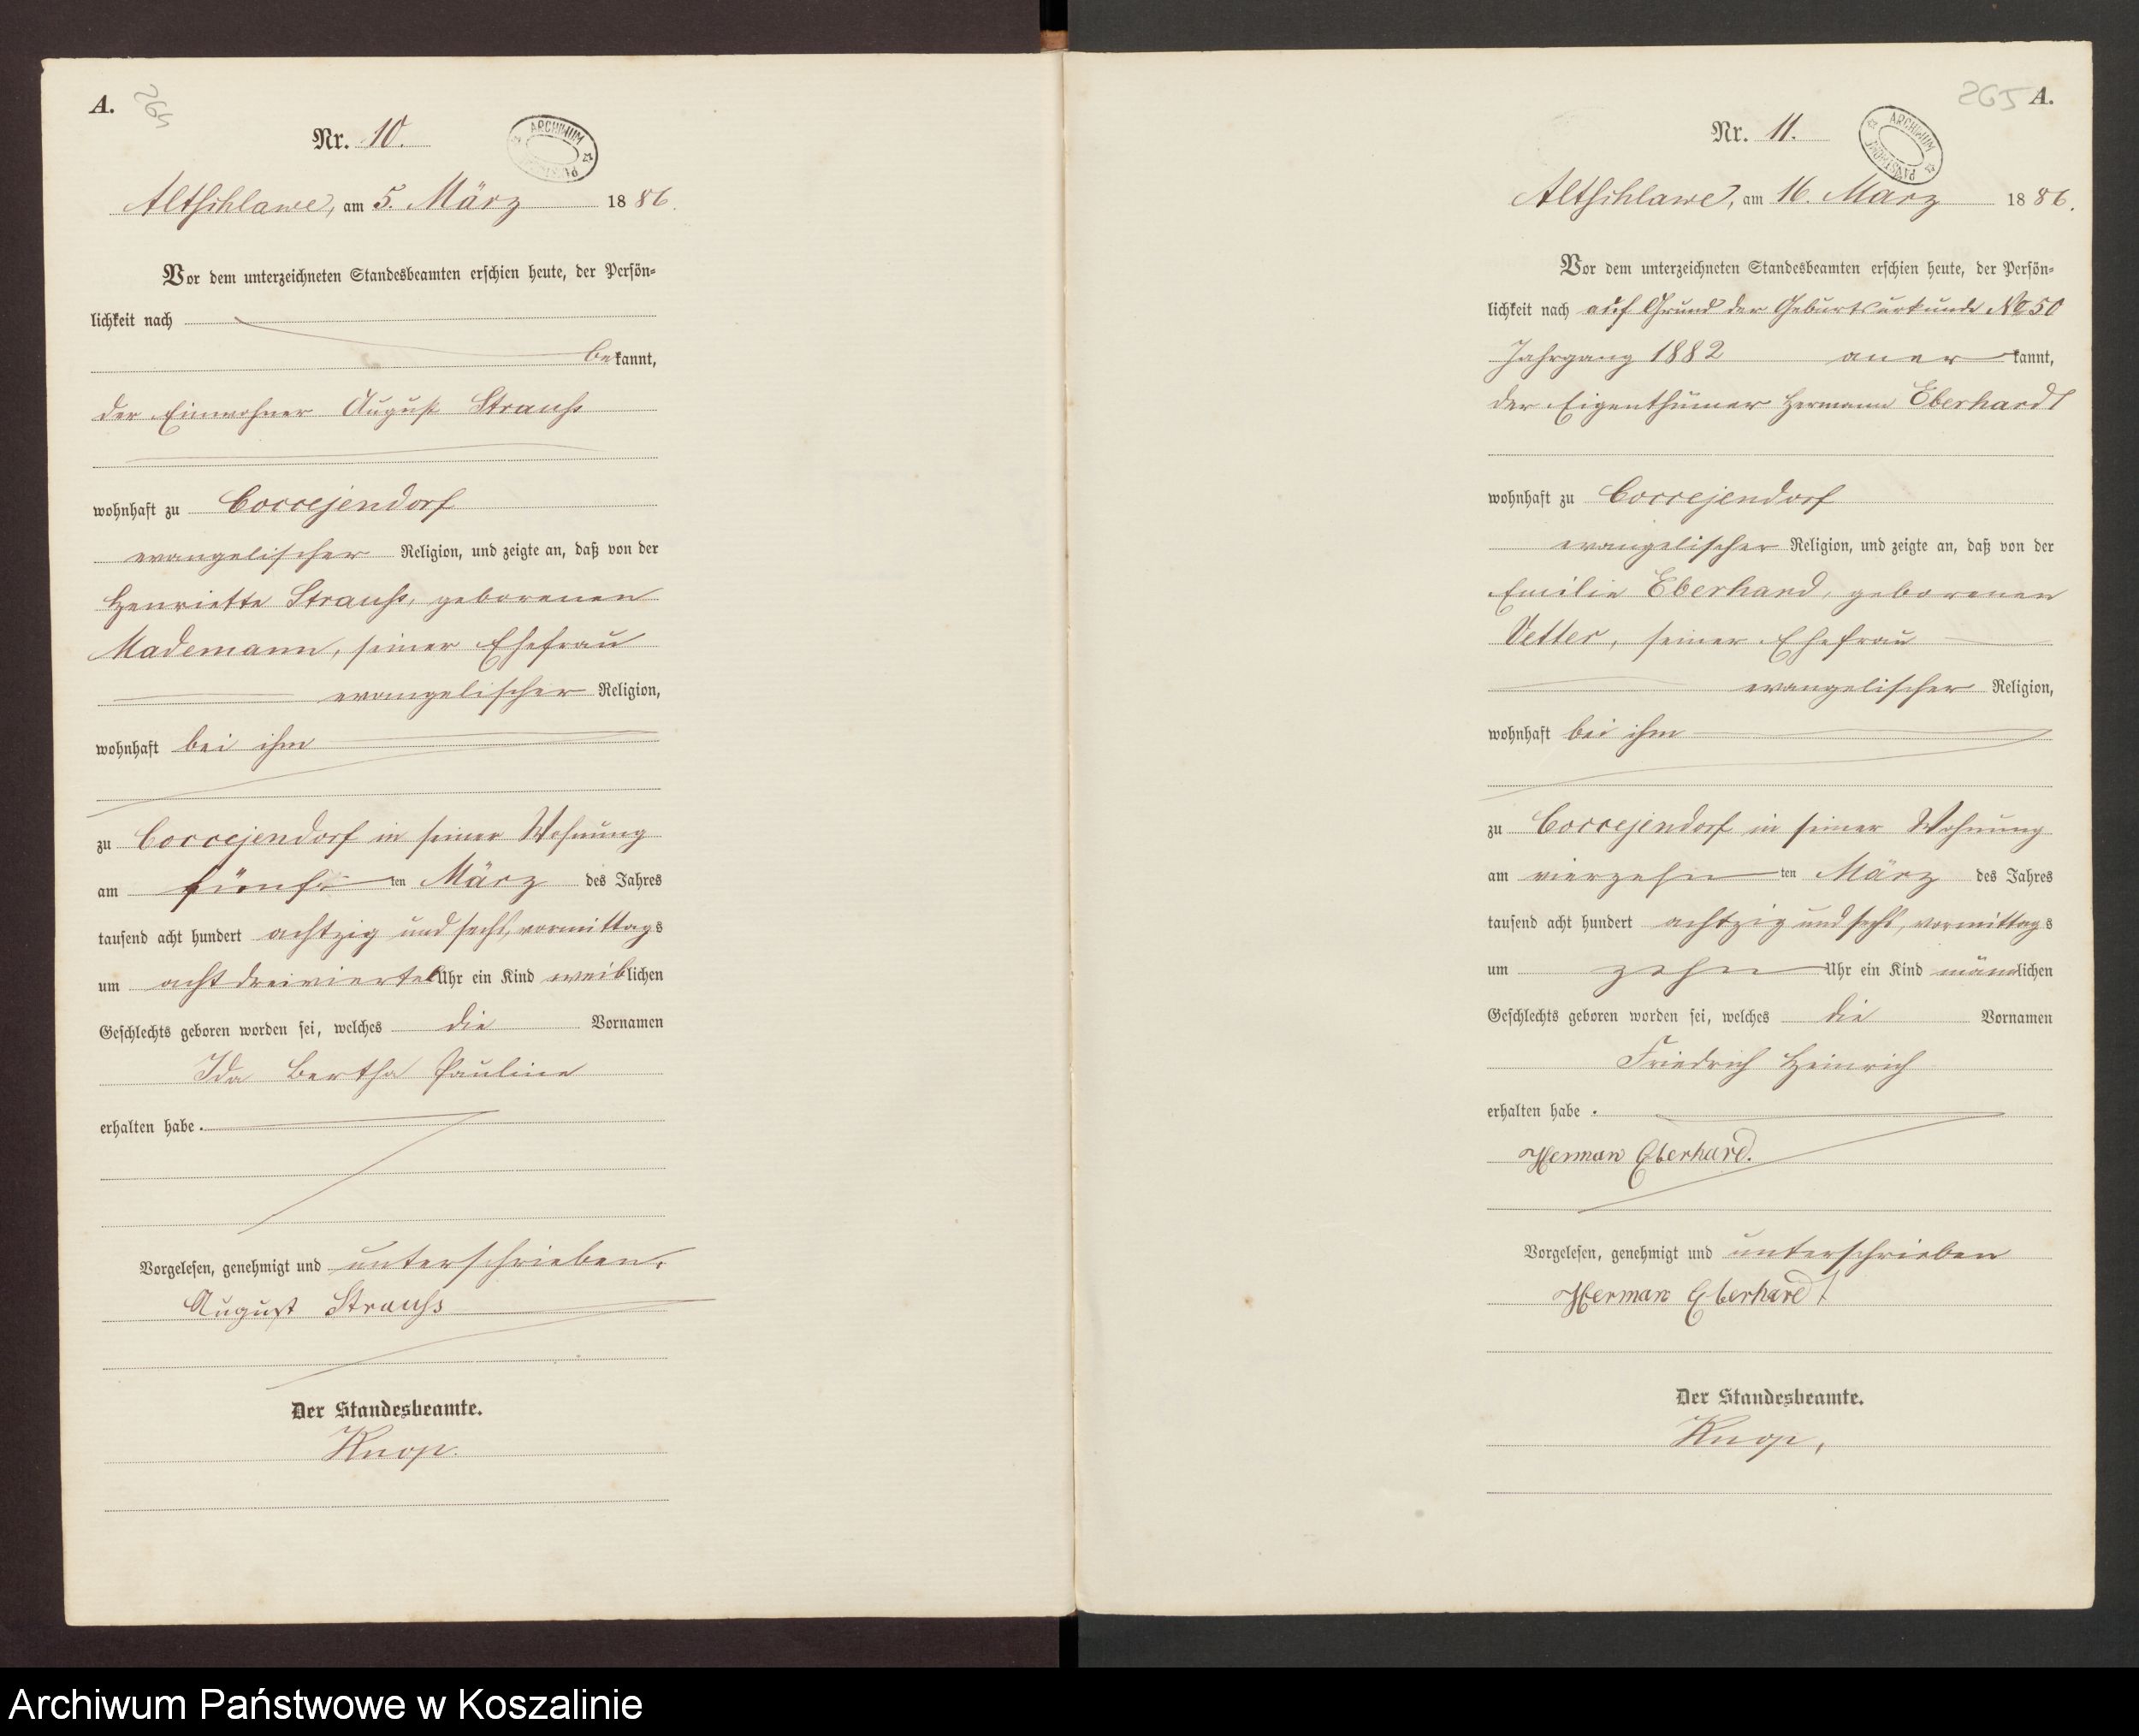 A.
264
Nr. 10.
ARCHIWUM
Altschlawe, am 5. März 1886.
Vor dem unterzeichneten Standesbeamten erschien heute, der Persön-
lichkeit nach
bekannt,
der Einwohner August Strauss
wohnhaft zu Coccejendorf
evangelischer Religion, und zeigte an, daß von der
Henriette Strauss, geborenen
Mademann, seiner Ehefrau
evangelischer Religion,
wohnhaft bei ihm
zu Coccejendorf in seiner Wohnung
am fünften März des Jahres
tausend acht hundert achtzig und sechs, vormittags
um acht dreiviertel Uhr ein Kind weiblichen
Geschlechts geboren worden sei, welches die Vornamen
Ida Bertha Pauline
erhalten habe.
Vorgelesen, genehmigt und unterschrieben.
August Strauss
Der Standesbeamte.
Knop.
265 A.
Nr. 11.
ARCHIWUM PAŃSTWOWE
Altschlawe, am 16. März 1886.
Vor dem unterzeichneten Standesbeamten erschien heute, der Persön-
lichkeit nach auf Grund der Geburtsurkunde No 50
Jahrgang 1882 anerkannt,
der Eigenthümer Hermann Eberhardt
wohnhaft zu Coccejendorf
evangelischer Religion, und zeigte an, daß von der
Emilie Eberhard, geborenen
Vetter, seiner Ehefrau
evangelischer Religion,
wohnhaft bei ihm
zu Coccejendorf in seiner Wohnung
am vierzehnten März des Jahres
tausend acht hundert achtzig und sechs, vormittags
um zehn Uhr ein Kind männlichen
Geschlechts geboren worden sei, welches die Vornamen
Friedrich Heinrich
erhalten habe.
Herman Eberhard.
Vorgelesen, genehmigt und unterschrieben
Herman Eberhardt
Der Standesbeamte.
Knop,
Archiwum Państwowe w Koszalinie